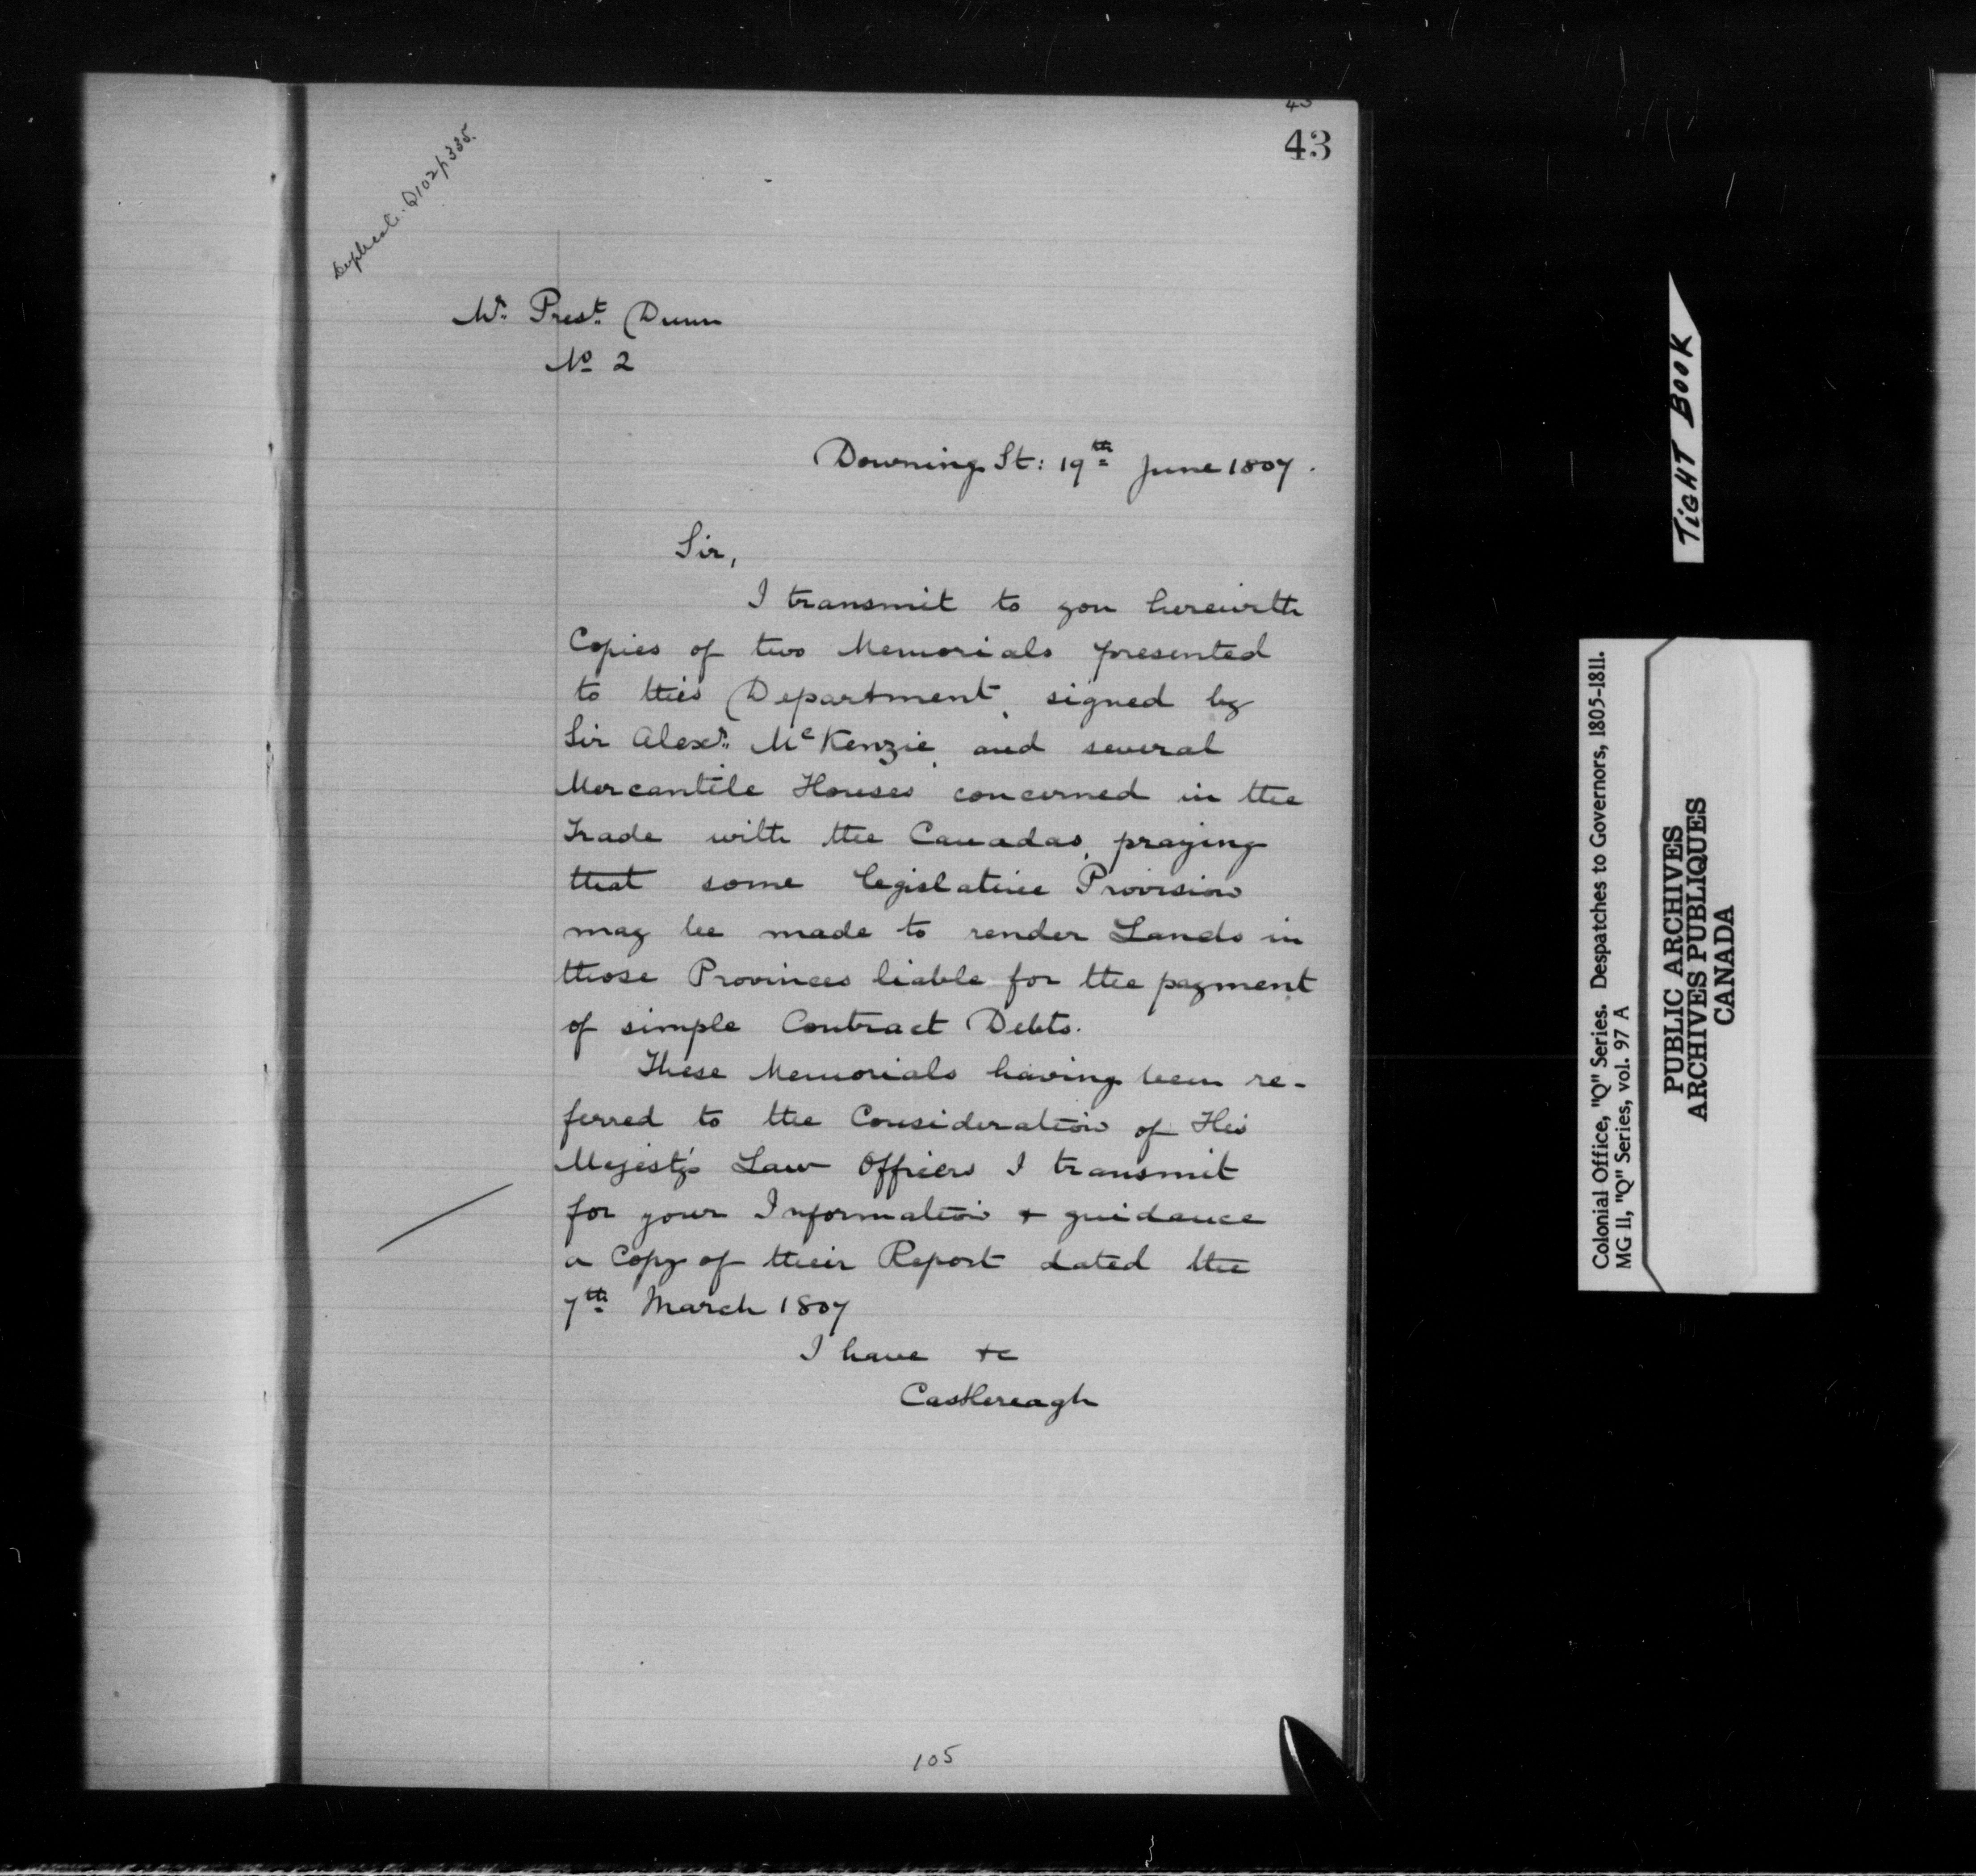 43
43
Duplicate. Q102/p335.
Mr. Prest. Dunn
No 2
Downing St: 19th June 1807.
Sir,
I transmit to you herewith
Copies of two Memorials presented
to this Department, signed by
Sir Alexr. McKenzie, and several
Mercantile Houses concerned in the
Trade with the Canadas, praying
that some legislative Provision
may be made to render Lands in
those Provinces liable for the payment
of simple Contract Debts.
These Memorials having been re-
ferred to the Consideration of His
Majesty's Law Officers I transmit
for your Information + guidance
a Copy of their Report dated the
7th March 1807
I have &c
Castlereagh
105
TIGHT BOOK
Colonial Office, "Q" Series. Despatches to Governors, 1805-1811.
MG 11, "Q" Series, vol. 97 A
PUBLIC ARCHIVES
ARCHIVES PUBLIQUES
CANADA